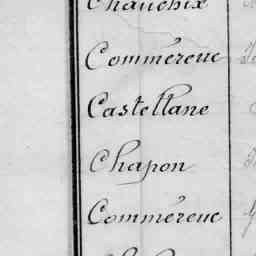 Commereuc
Castellane
Chapon
Commereuc